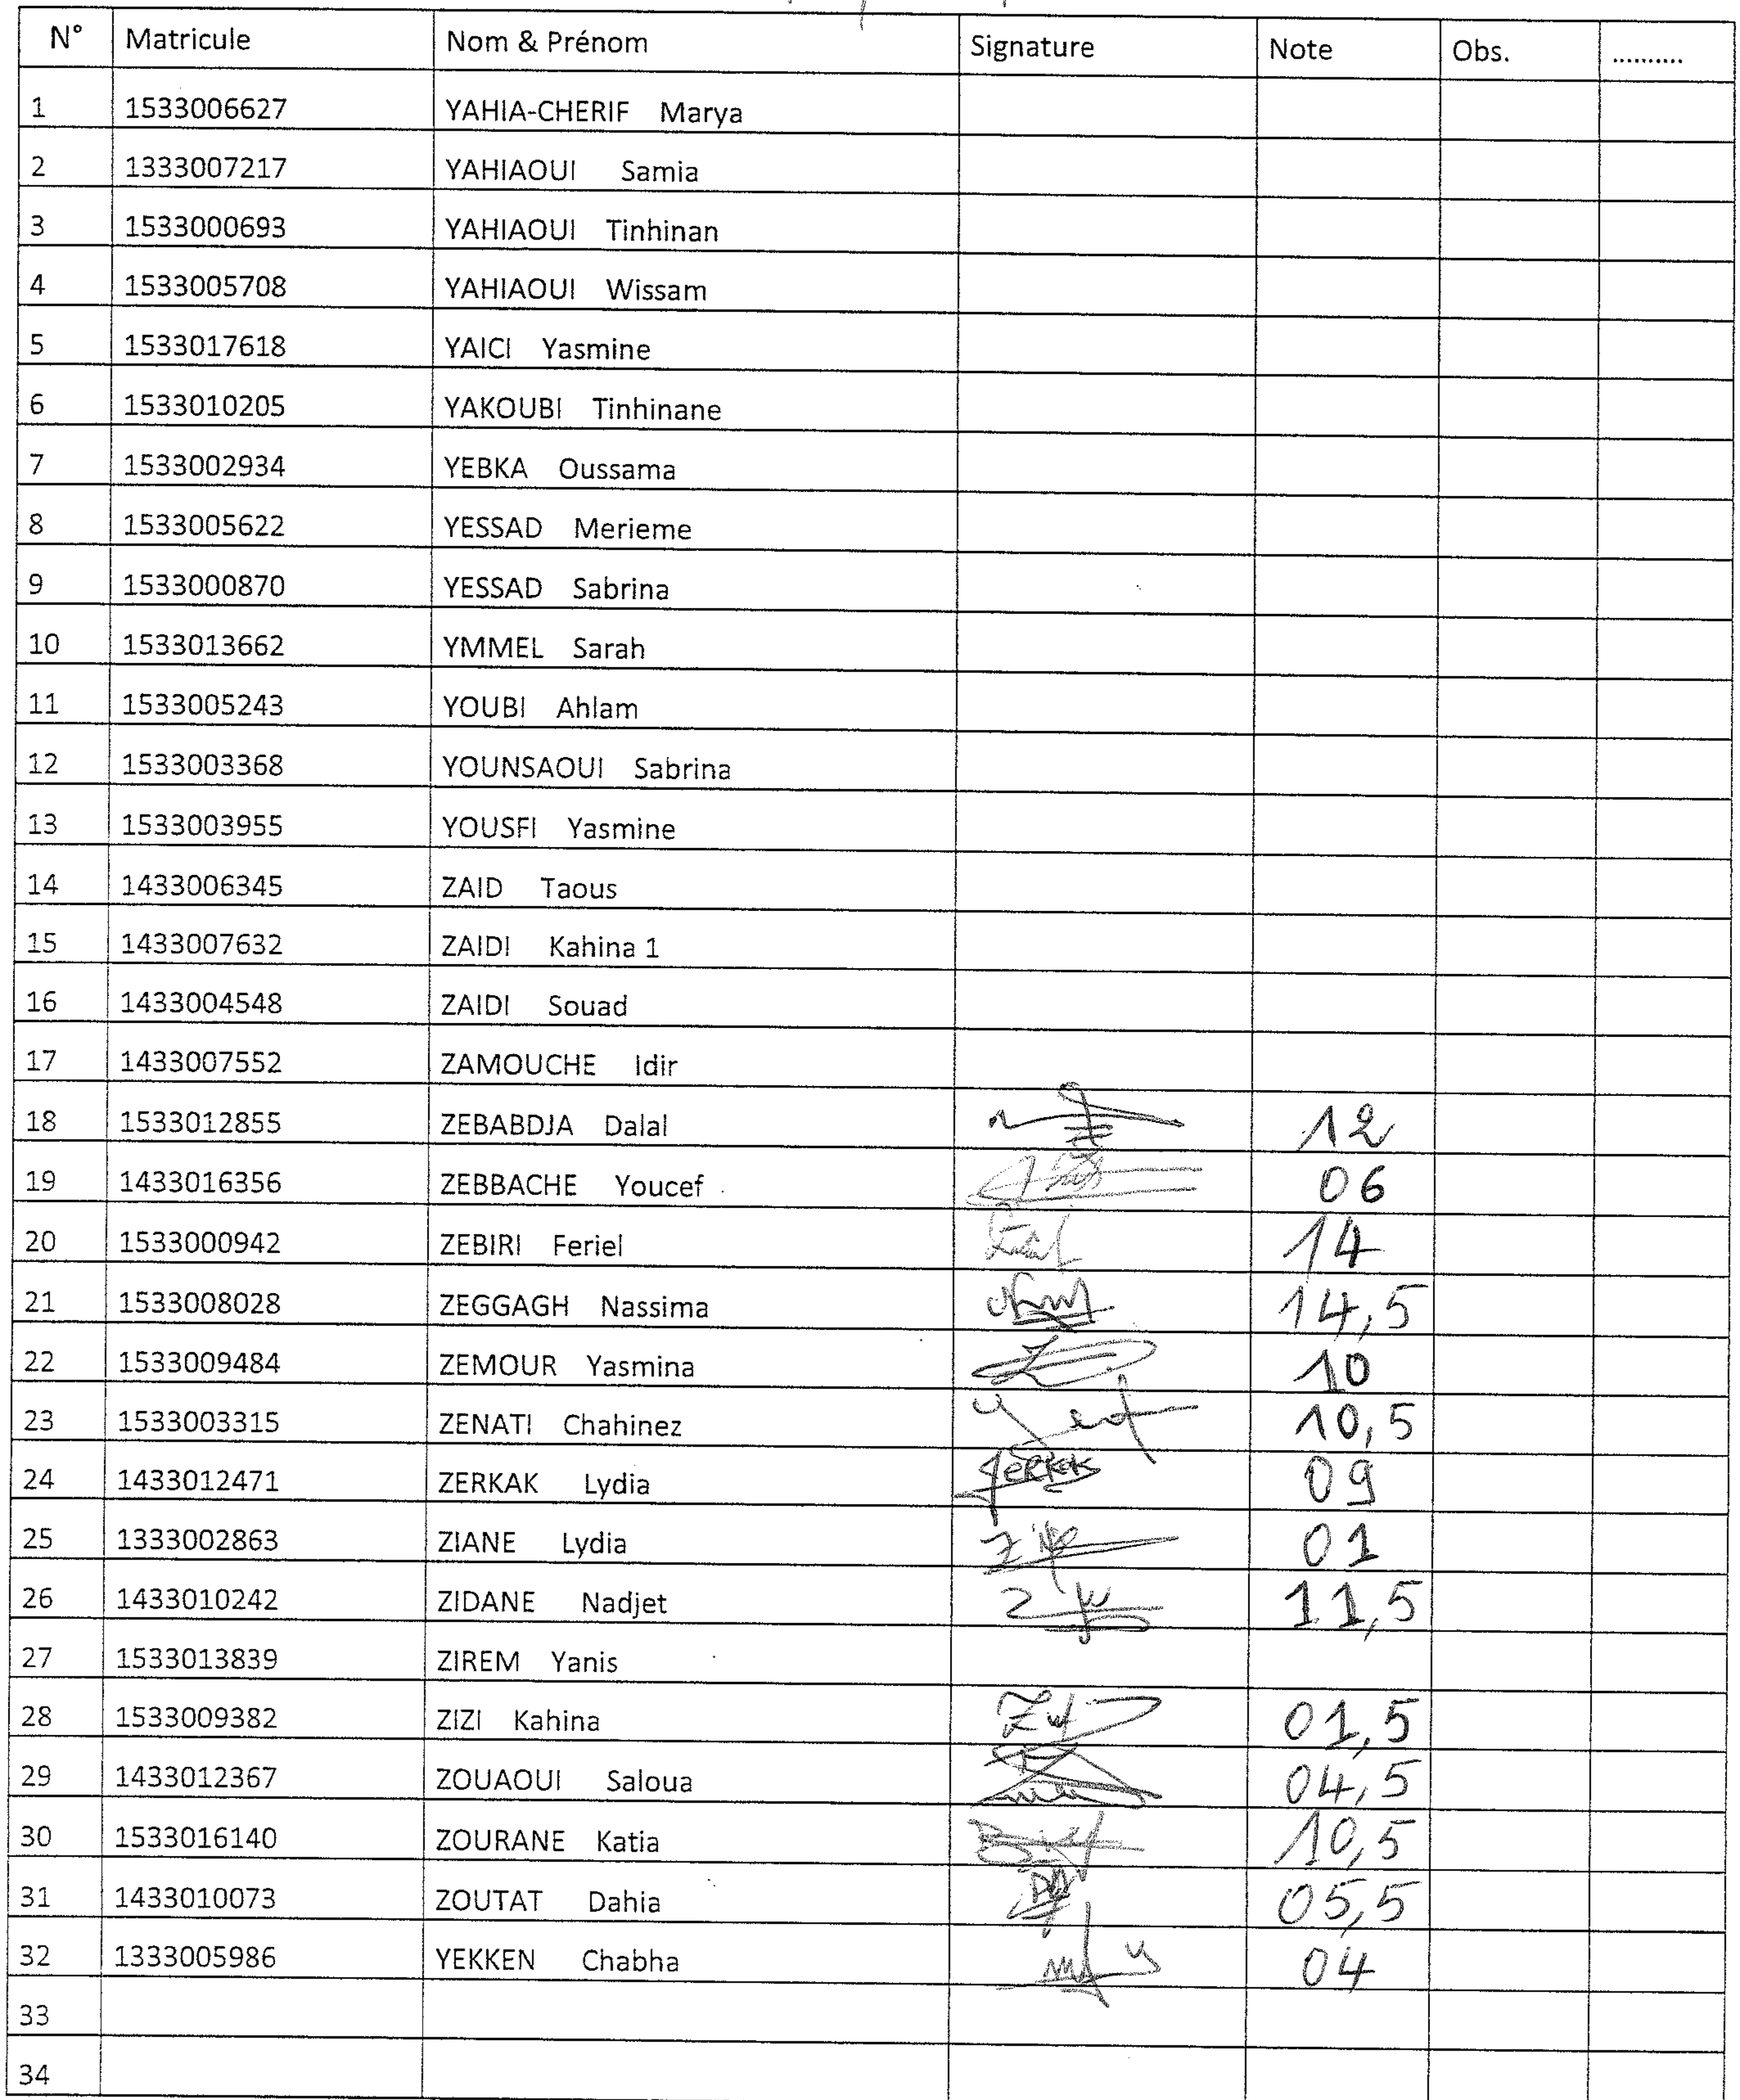 N° Matricule Nom & Prénom Signature Note Obs. ..........
1 1533006627 YAHIA-CHERIF Marya
2 1333007217 YAHIAOUI Samia
3 1533000693 YAHIAOUI Tinhinan
4 1533005708 YAHIAOUI Wissam
5 1533017618 YAICI Yasmine
6 1533010205 YAKOUBI Tinhinane
7 1533002934 YEBKA Oussama
8 1533005622 YESSAD Merieme
9 1533000870 YESSAD Sabrina
10 1533013662 YMMEL Sarah
11 1533005243 YOUBI Ahlam
12 1533003368 YOUNSAOUI Sabrina
13 1533003955 YOUSFI Yasmine
14 1433006345 ZAID Taous
15 1433007632 ZAIDI Kahina 1
16 1433004548 ZAIDI Souad
17 1433007552 ZAMOUCHE Idir
18 1533012855 ZEBABDJA Dalal 12
19 1433016356 ZEBBACHE Youcef 06
20 1533000942 ZEBIRI Feriel 14
21 1533008028 ZEGGAGH Nassima 14,5
22 1533009484 ZEMOUR Yasmina 10
23 1533003315 ZENATI Chahinez 10,5
24 1433012471 ZERKAK Lydia 09
25 1333002863 ZIANE Lydia 01
26 1433010242 ZIDANE Nadjet 11,5
27 1533013839 ZIREM Yanis
28 1533009382 ZIZI Kahina 01,5
29 1433012367 ZOUAOUI Saloua 04,5
30 1533016140 ZOURANE Katia 10,5
31 1433010073 ZOUTAT Dahia 05,5
32 1333005986 YEKKEN Chabha 04
33
34